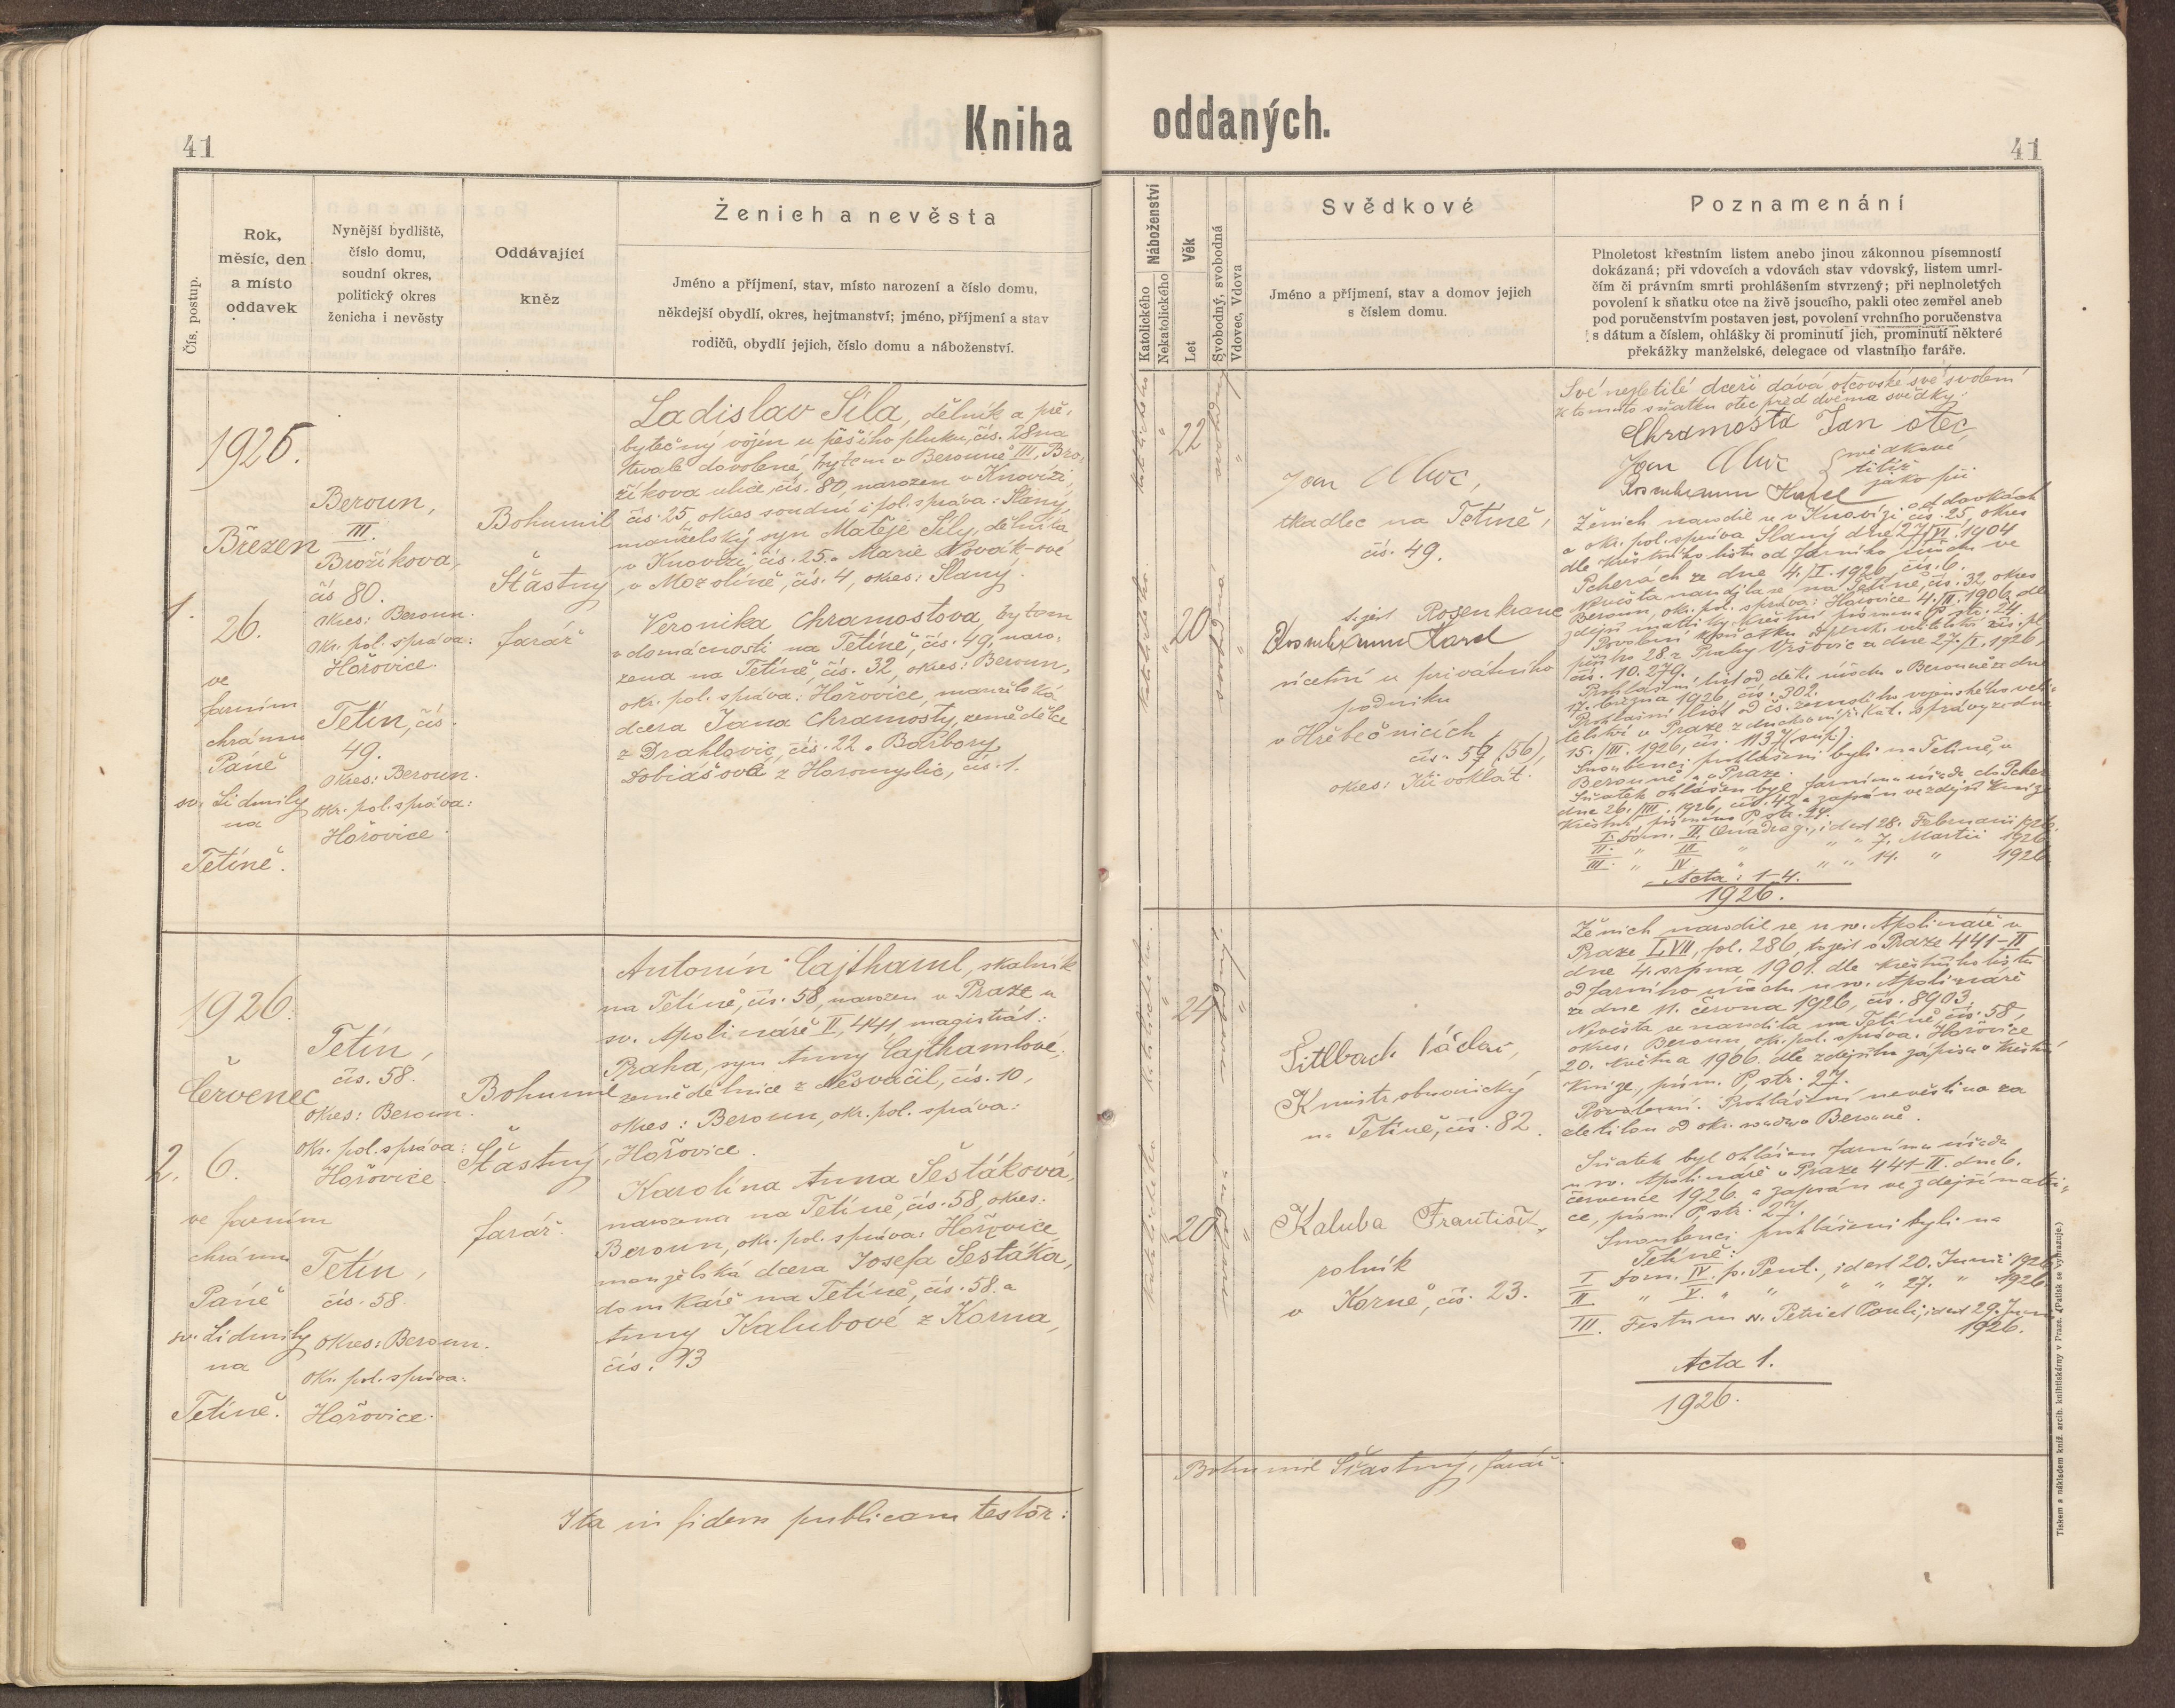 41
Kniha
Čís. postup.
Rok,
měsíc, den
a místo
oddavek
Nynější bydliště,
číslo domu,
soudní okres,
politický okres
ženicha i nevěsty
Oddávající
kněz
Ženich a nevěsta
Jméno a příjmení, stav, místo narození a číslo domu,
někdejší obydlí, okres, hejtmanství; jméno, příjmení a stav
rodičů, obydlí jejich, číslo domu a náboženství.
1.
1926.
Březen
26.
ve
farním
chrámu
Páně
sv. Lidmily
na
Tetíně.
Beroun,
III.
Brožíkova,
čís 80.
okres: Beroun.
okr. pol. správa:
Hořovice.
Tetín, čís.
49.
okres: Beroun.
okr. pol. správa:
Hořovice.
Bohumil
Šťastný,
farář
Ladislav Síla, dělník a pře-
bytečný vojín u pěšího pluku, čís. 28 na
trvalé dovolené, bytem v Berouně III, Bro-
žíkova ulice, čís. 80, narozen v Knovízi,
čís. 25, okres soudní i pol. správa: Slaný,
manželský syn Matěje Síly, dělníka
v Knovízi, čís. 25 a Marie Novák-ové
v Mozolíně, čís. 4, okres: Slaný.
Veronika Chramostova, bytem
v domácnosti na Tetíně, čís. 49, naro-
zena na Tetíně, čís. 32, okres: Beroun,
okr. pol. správa: Hořovice, manželská
dcera Jana Chramosty, zemědělce
z Drahlovic, čís. 22 a Barbory
Tobiášové z Horomyslic, čís. 1.
2.
1926.
Červenec
6.
ve farním
chrámu
Páně
sv. Lidmily
na
Tetíně.
Tetín,
čís. 58.
okres: Beroun.
okr. pol. správa:
Hořovice.
Tetín,
čís. 58.
okres: Beroun.
okr. pol. správa:
Hořovice.
Bohumil
Šťastný,
farář.
Antonín Cajthaml, skalník
na Tetíně, čís. 58, narozen v Praze u
sv. Apolináře II, 441, magistrát:
Praha, syn Anny Cajthamlové,
zemědělnice z Nesvačil, čís. 10,
okres: Beroun, okr. pol. správa:
Hořovice.
Karolína Anna Šestáková,
narozena na Tetíně, čís. 58, okres:
Beroun, okr. pol. správa: Hořovice
manželská dcera Josefa Šestáka,
domkáře na Tetíně, čís. 58. a
Anny Kalubové z Korna,
čís. 13
Ita in fidem publicam testor:
oddaných.
41
Náboženství
Katolického
Nekatolického
Věk
Let
Svobodný, svobodná
Vdovec, Vdova
Svědkové
Jméno a příjmení, stav a domov jejich
s číslem domu.
Poznamenání
Plnoletost křestním listem anebo jinou zákonnou písemností
dokázaná; při vdovcích a vdovách stav vdovský, listem umrl-
čím či právním smrti prohlášením stvrzený; při neplnoletých
povolení k sňatku otce na živě jsoucího, pakli otec zemřel aneb
pod poručenstvím postaven jest, povolení vrchního poručenstva
s dátum a číslem, ohlášky či prominutí jich, prominutí některé
překážky manželské, delegace od vlastního faráře.
katolického
"
22
svobodný
"
katolického
"
20
svobodná
"
Jan
tkadlec na Tetíně,
čís. 49.
Rosenkranc
Karel
účetní u privátního
podniku
v Hřebečnicích
čís. 57 (56),
okres: Křivoklát.
Své nezletilé dceři dává otcovské své svolení
k tomuto sňatku otec před dvěma svědky:
Chramosta Jan otec
Jan
svědkové
titíž
jako při
oddavkách
Karel
Ženich narodil se v Knovízi čís. 25, okres
a okr. pol. správa Slaný dne 27/VI. 1904
dle křestního listu od farního úřadu ve
Pcherách ze dne 4./I. 1926, čís. 6.
Nevěsta narodila se na Tetíně, čís. 32, okres
Beroun, okr. pol. správa: Hořovice 4./II. 1906, dle
zdejší matriky křestní písmena P. str. 24.
Povolení ku sňatku od velitelství čís. pl.
pěšího 28 z Prahy Vršovic ze dne 27./I. 1926,
čís. 10.279.
Prohlášní list od děk. úřadu v Berouně ze dne
17. března 1926, čís. 302.
Prohlašní list od čs. zemského vojenského veli-
telství v Praze z duchovní kat. správy ze dne
15./III. 1926, čís. 1137
Snoubenci prohlášeni byli na Tetíně, v
Berouně a v Praze.
Sňatek ohlášen byl farnímu úřadu do Pcher
dne 26./III. 1926, čís. 42 a zapsán ve zdejší knize
křestní, písmeno P. str. 24.
I. Dom. II. Quadrag., id est 28. Februarii 1926.
II. " III " " " 7. Martii 1926
III. " IV " " " 14. " 1926
Acta: 1-4.
1926.
katolického
"
24
svobodný
"
katolického
"
20
svobodná
"
Václav,
obuvnický
na Tetíně, čís. 82.
Kaluba František,
rolník
v Korně, čís. 23.
Ženich narodil se u sv. Apolináře v
Praze LVII, fol. 286, to jest v Praze 441-II
dne 4. srpna 1901. dle křestního listu
od farního úřadu u sv. Apolináře
ze dne 11. června 1926, čís. 8903.
Nevěsta se narodila na Tetíně, čís. 58,
okres: Beroun, okr. pol. správa: Hořovice
20. května 1906. dle zdejšího zápisu v křestní
knize, písm. P, str. 27.
Povolení. Prohlášení nevěsty za
zletilou od okr. soudu v Berouně.
Sňatek byl ohlášen farnímu úřadu
u sv. Apolináře v Praze 441-II. dne 6.
července 1926 a zapsán ve zdejší matri-
ce, písm. P, str. 27.
Snoubenci prohlášeni byli na
Tetíně:
I Dom. IV. p. Pent., id est 20. Junii 1926
II " V. " " " " 27. " 1926
III. Festum ss. Petri et Pauli, id est 29. Junii
1926.
Acta 1.
1926.
Bohumil Šťastný, farář.
Tiskem a nákladem kníž. arcib. knihtiskárny v Praze.